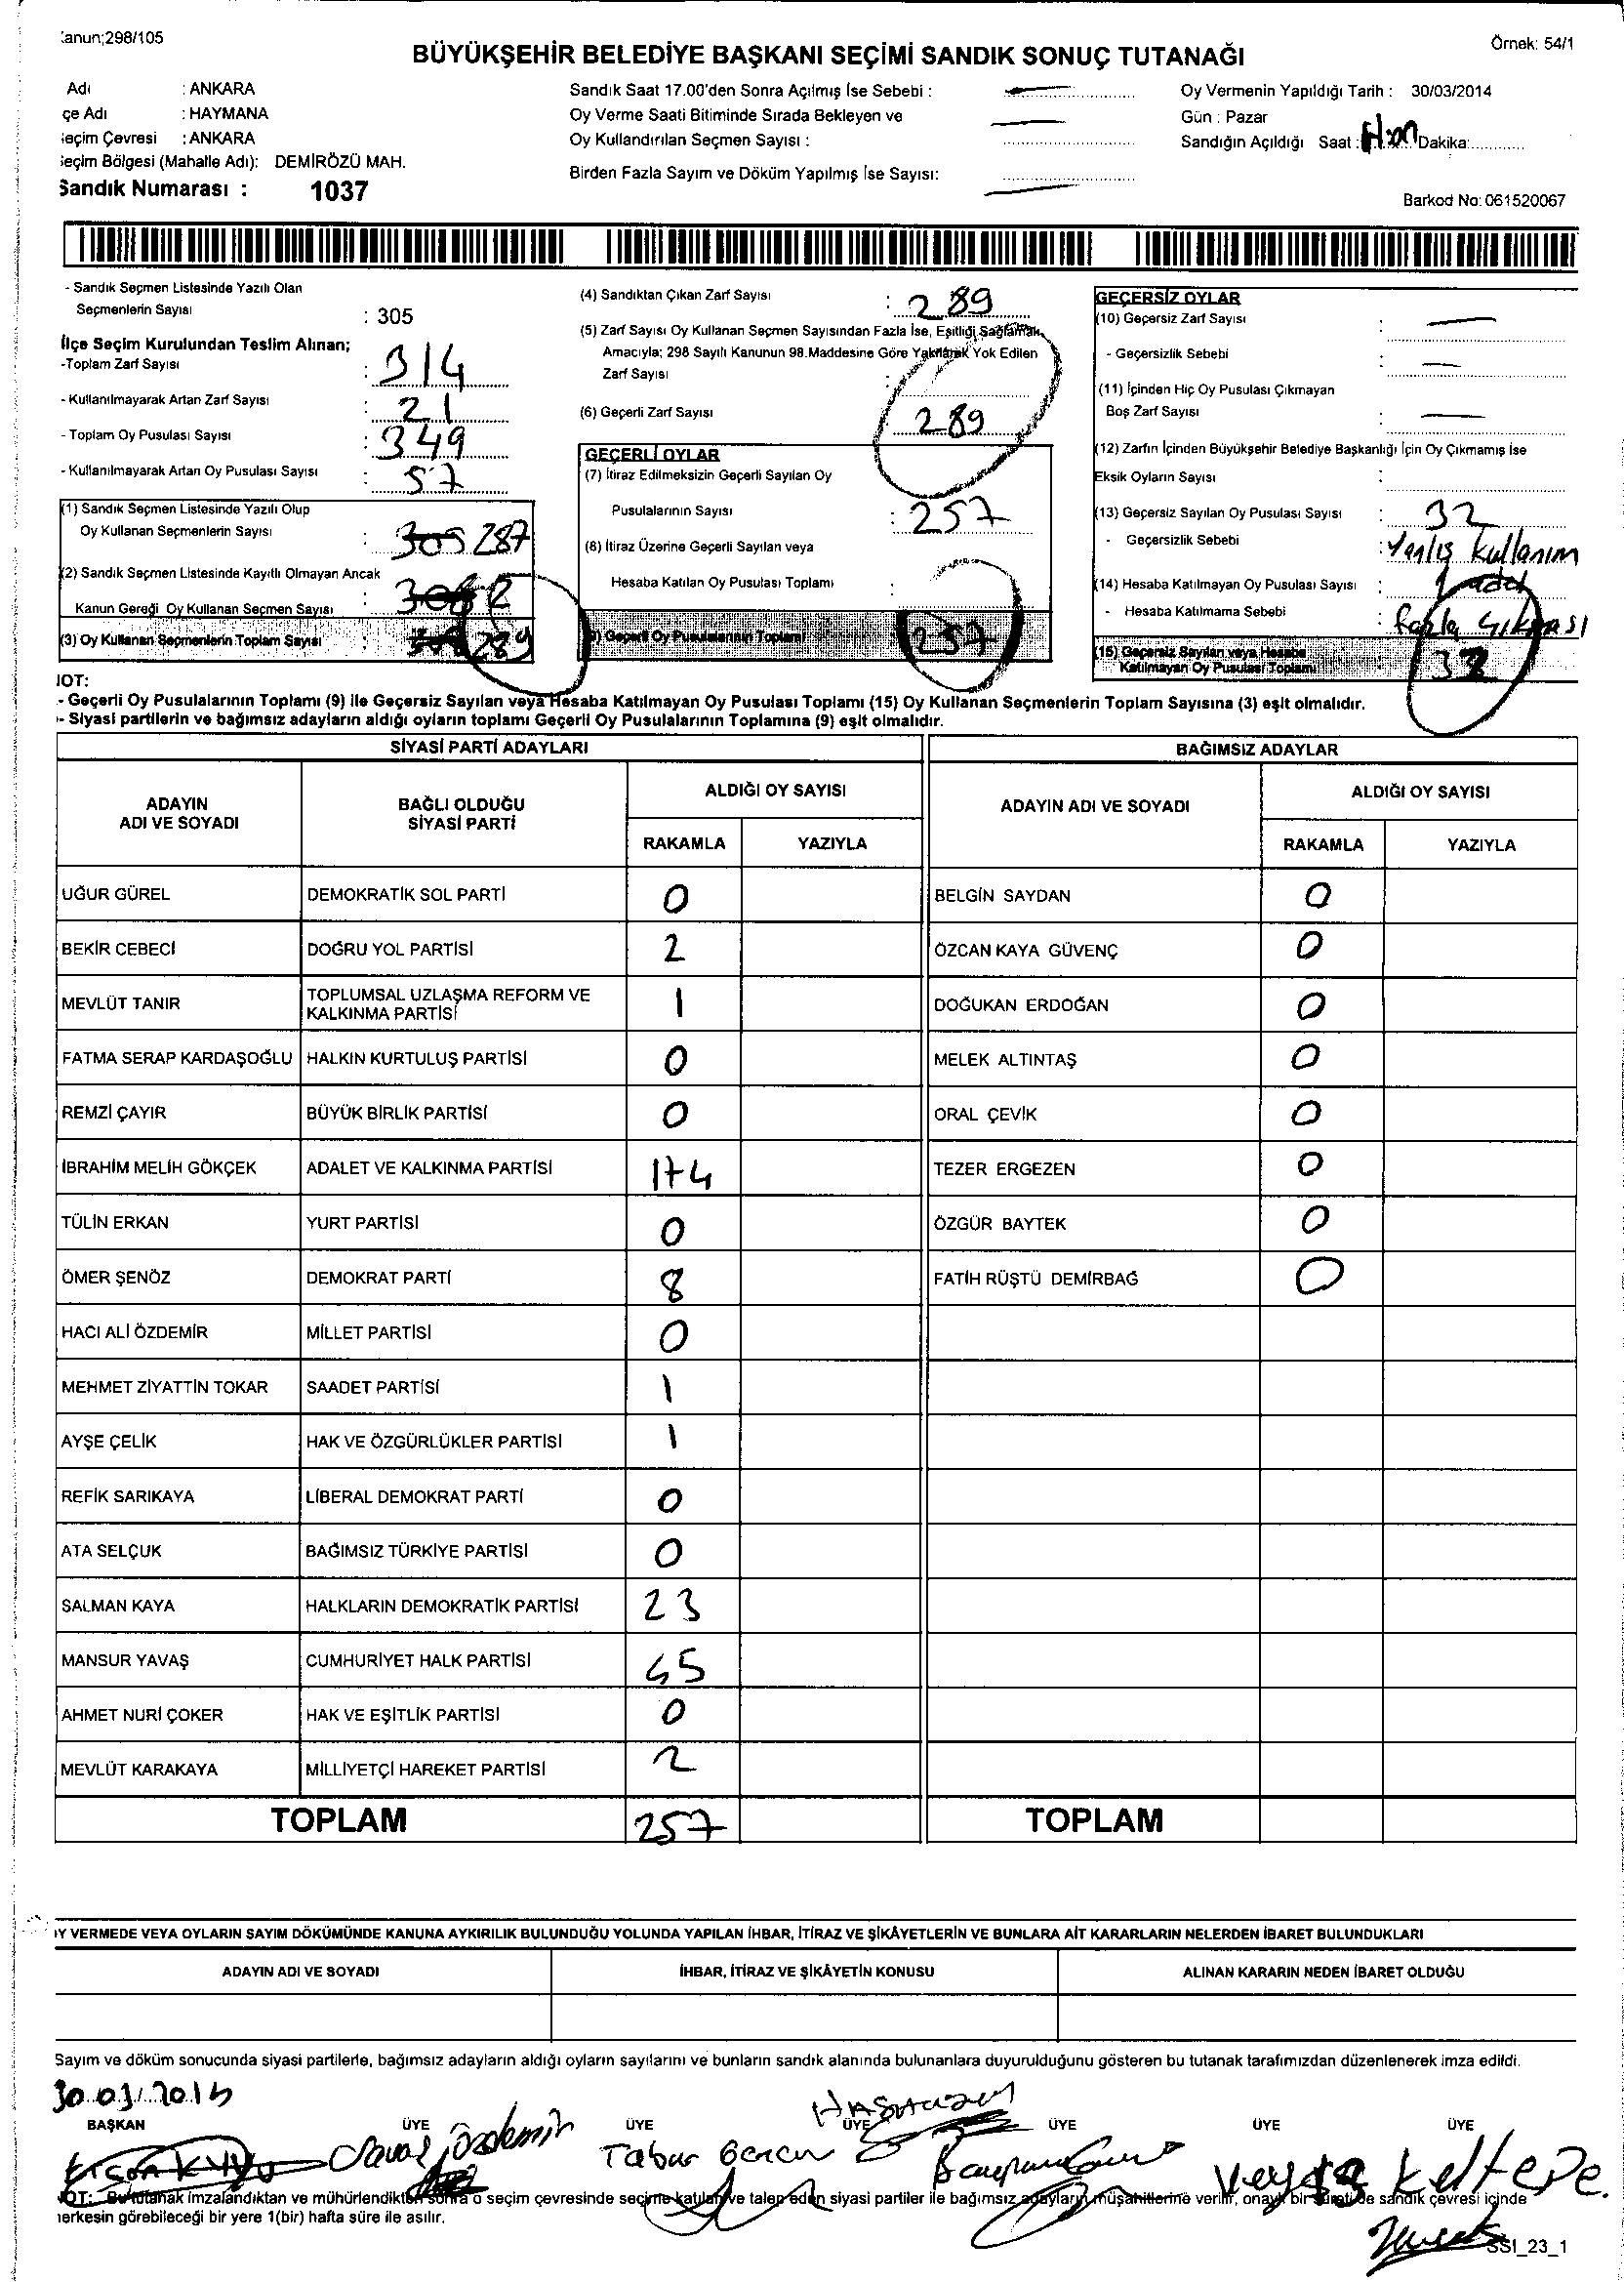 anun;298/105
Örnek: 54/1
BÜYÜKŞEHİR BELEDİYE BAŞKANI SEÇİMİ SANDIK SONUÇ TUTANAĞI
Adı : ANKARA
çe Adı : HAYMANA
eçim Çevresi : ANKARA
eçim Bölgesi (Mahalle Adı): DEMİRÖZÜ MAH.
Sandık Numarası : 1037
Sandık Saat 17.00'den Sonra Açılmış İse Sebebi :
Oy Verme Saati Bitiminde Sırada Bekleyen ve
Oy Kullandırılan Seçmen Sayısı :
Birden Fazla Sayım ve Döküm Yapılmış İse Sayısı:
Oy Vermenin Yapıldığı Tarih : 30/03/2014
Gün : Pazar
Sandığın Açıldığı Saat : Dakika:
Barkod No: 061520067
- Sandık Seçmen Listesinde Yazılı Olan
Seçmenlerin Sayısı : 305
İlçe Seçim Kurulundan Teslim Alınan;
-Toplam Zarf Sayısı : 314
- Kullanılmayarak Artan Zarf Sayısı : 21
- Toplam Oy Pusulası Sayısı : 349
- Kullanılmayarak Artan Oy Pusulası Sayısı : 57
(1) Sandık Seçmen Listesinde Yazılı Olup
Oy Kullanan Seçmenlerin Sayısı : 305 287
(2) Sandık Seçmen Listesinde Kayıtlı Olmayan Ancak
Kanun Gereği Oy Kullanan Seçmen Sayısı : 2
(3) Oy Kullanan Seçmenlerin Toplam Sayısı : 289
(4) Sandıktan Çıkan Zarf Sayısı : 289
(5) Zarf Sayısı Oy Kullanan Seçmen Sayısından Fazla İse, Eşitliği Sağlamak
Amacıyla; 298 Sayılı Kanunun 98.Maddesine Göre Yakılarak Yok Edilen
Zarf Sayısı :
(6) Geçerli Zarf Sayısı 289
GEÇERLİ OYLAR
(7) İtiraz Edilmeksizin Geçerli Sayılan Oy
Pusulalarının Sayısı : 257
(8) İtiraz Üzerine Geçerli Sayılan veya
Hesaba Katılan Oy Pusulası Toplamı :
(9) Geçerli Oy Pusulalarının Toplamı 257
GEÇERSİZ OYLAR
(10) Geçersiz Zarf Sayısı :
- Geçersizlik Sebebi :
(11) İçinden Hiç Oy Pusulası Çıkmayan
Boş Zarf Sayısı :
(12) Zarfın İçinden Büyükşehir Belediye Başkanlığı İçin Oy Çıkmamış İse
Eksik Oyların Sayısı :
(13) Geçersiz Sayılan Oy Pusulası Sayısı : 32
- Geçersizlik Sebebi : Yanlış kullanım
(14) Hesaba Katılmayan Oy Pusulası Sayısı : 1 adet
- Hesaba Katılmama Sebebi : fazla çıkması
(15) Geçersiz Sayılan veya Hesaba
Katılmayan Oy Pusulası Toplamı : 32
NOT:
- Geçerli Oy Pusulalarının Toplamı (9) ile Geçersiz Sayılan veya Hesaba Katılmayan Oy Pusulası Toplamı (15) Oy Kullanan Seçmenlerin Toplam Sayısına (3) eşit olmalıdır.
- Siyasi partilerin ve bağımsız adayların aldığı oyların toplamı Geçerli Oy Pusulalarının Toplamına (9) eşit olmalıdır.
SİYASİ PARTİ ADAYLARI
ADAYIN ADI VE SOYADI
BAĞLI OLDUĞU SİYASİ PARTİ
ALDIĞI OY SAYISI
RAKAMLA YAZIYLA
UĞUR GÜREL DEMOKRATİK SOL PARTİ 0
BEKİR CEBECİ DOĞRU YOL PARTİSİ 2
MEVLÜT TANIR TOPLUMSAL UZLAŞMA REFORM VE KALKINMA PARTİSİ 1
FATMA SERAP KARDAŞOĞLU HALKIN KURTULUŞ PARTİSİ 0
REMZİ ÇAYIR BÜYÜK BİRLİK PARTİSİ 0
İBRAHİM MELİH GÖKÇEK ADALET VE KALKINMA PARTİSİ 174
TÜLİN ERKAN YURT PARTİSİ 0
ÖMER ŞENÖZ DEMOKRAT PARTİ 8
HACI ALİ ÖZDEMİR MİLLET PARTİSİ 0
MEHMET ZİYATTİN TOKAR SAADET PARTİSİ 1
AYŞE ÇELİK HAK VE ÖZGÜRLÜKLER PARTİSİ 1
REFİK SARIKAYA LİBERAL DEMOKRAT PARTİ 0
ATA SELÇUK BAĞIMSIZ TÜRKİYE PARTİSİ 0
SALMAN KAYA HALKLARIN DEMOKRATİK PARTİSİ 23
MANSUR YAVAŞ CUMHURİYET HALK PARTİSİ 45
AHMET NURİ ÇOKER HAK VE EŞİTLİK PARTİSİ 0
MEVLÜT KARAKAYA MİLLİYETÇİ HAREKET PARTİSİ 2
TOPLAM 257
BAĞIMSIZ ADAYLAR
ADAYIN ADI VE SOYADI
ALDIĞI OY SAYISI
RAKAMLA YAZIYLA
BELGİN SAYDAN 0
ÖZCAN KAYA GÜVENÇ 0
DOĞUKAN ERDOĞAN 0
MELEK ALTINTAŞ 0
ORAL ÇEVİK 0
TEZER ERGEZEN 0
ÖZGÜR BAYTEK 0
FATİH RÜŞTÜ DEMİRBAĞ 0
TOPLAM
Y VERMEDE VEYA OYLARIN SAYIM DÖKÜMÜNDE KANUNA AYKIRILIK BULUNDUĞU YOLUNDA YAPILAN İHBAR, İTİRAZ VE ŞİKÂYETLERİN VE BUNLARA AİT KARARLARIN NELERDEN İBARET BULUNDUKLARI
ADAYIN ADI VE SOYADI İHBAR, İTİRAZ VE ŞİKÂYETİN KONUSU ALINAN KARARIN NEDEN İBARET OLDUĞU
Sayım ve döküm sonucunda siyasi partilerle, bağımsız adayların aldığı oyların sayılarını ve bunların sandık alanında bulunanlara duyurulduğunu gösteren bu tutanak tarafımızdan düzenlenerek imza edildi.
30.03.2014
BAŞKAN ÜYE ÜYE ÜYE ÜYE ÜYE ÜYE
Özdemir Veysel Keltepe
NOT: Bu tutanak imzalandıktan ve mühürlendikten sonra o seçim çevresinde seçime katılan ve talep eden siyasi partiler ile bağımsız adayların müşahitlerine verilir, onaylı bir sureti de sandık çevresi içinde
herkesin görebileceği bir yere 1(bir) hafta süre ile asılır.
SSI_23_1